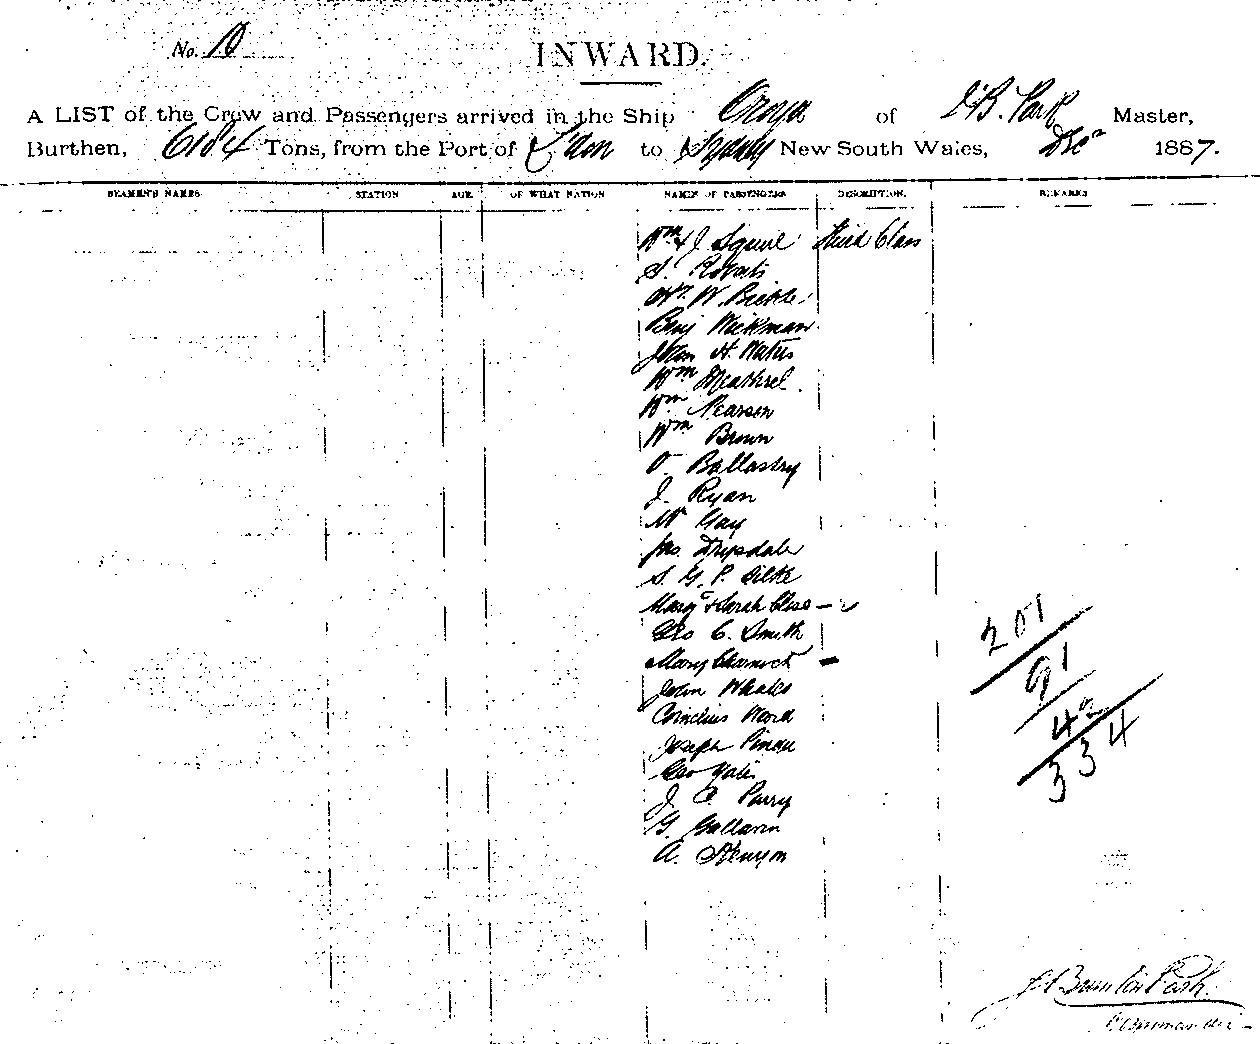 No. 10
INWARD.
A LIST of the Crew and Passengers arrived in the Ship Oroya of J B. Park Master,
Burthen, 6184 Tons, from the Port of to Sydney New South Wales, Dec 1887.
SEAMEN'S NAMES STATION AGE OF WHAT NATION NAMES OF PASSENGERS DESCRIPTION. REMARKS
Wm & J Squire third Class
S. Roberts
W. Bickle
Benj Wickman
John H. Waters
Wm Meathrel
Wm Pearson
Wm Brown
O. Ballastry
J. Ryan
W Gay
Jas. Drysdale
S. G. P. Silke
Margt & Sarah
Geo C. Smith
Mary
John Whales
Cornelius Ward
Joseph
Geo Yates
J. C. Parry
G.
A. Kenyon
201
91
42
334
Park
Commander